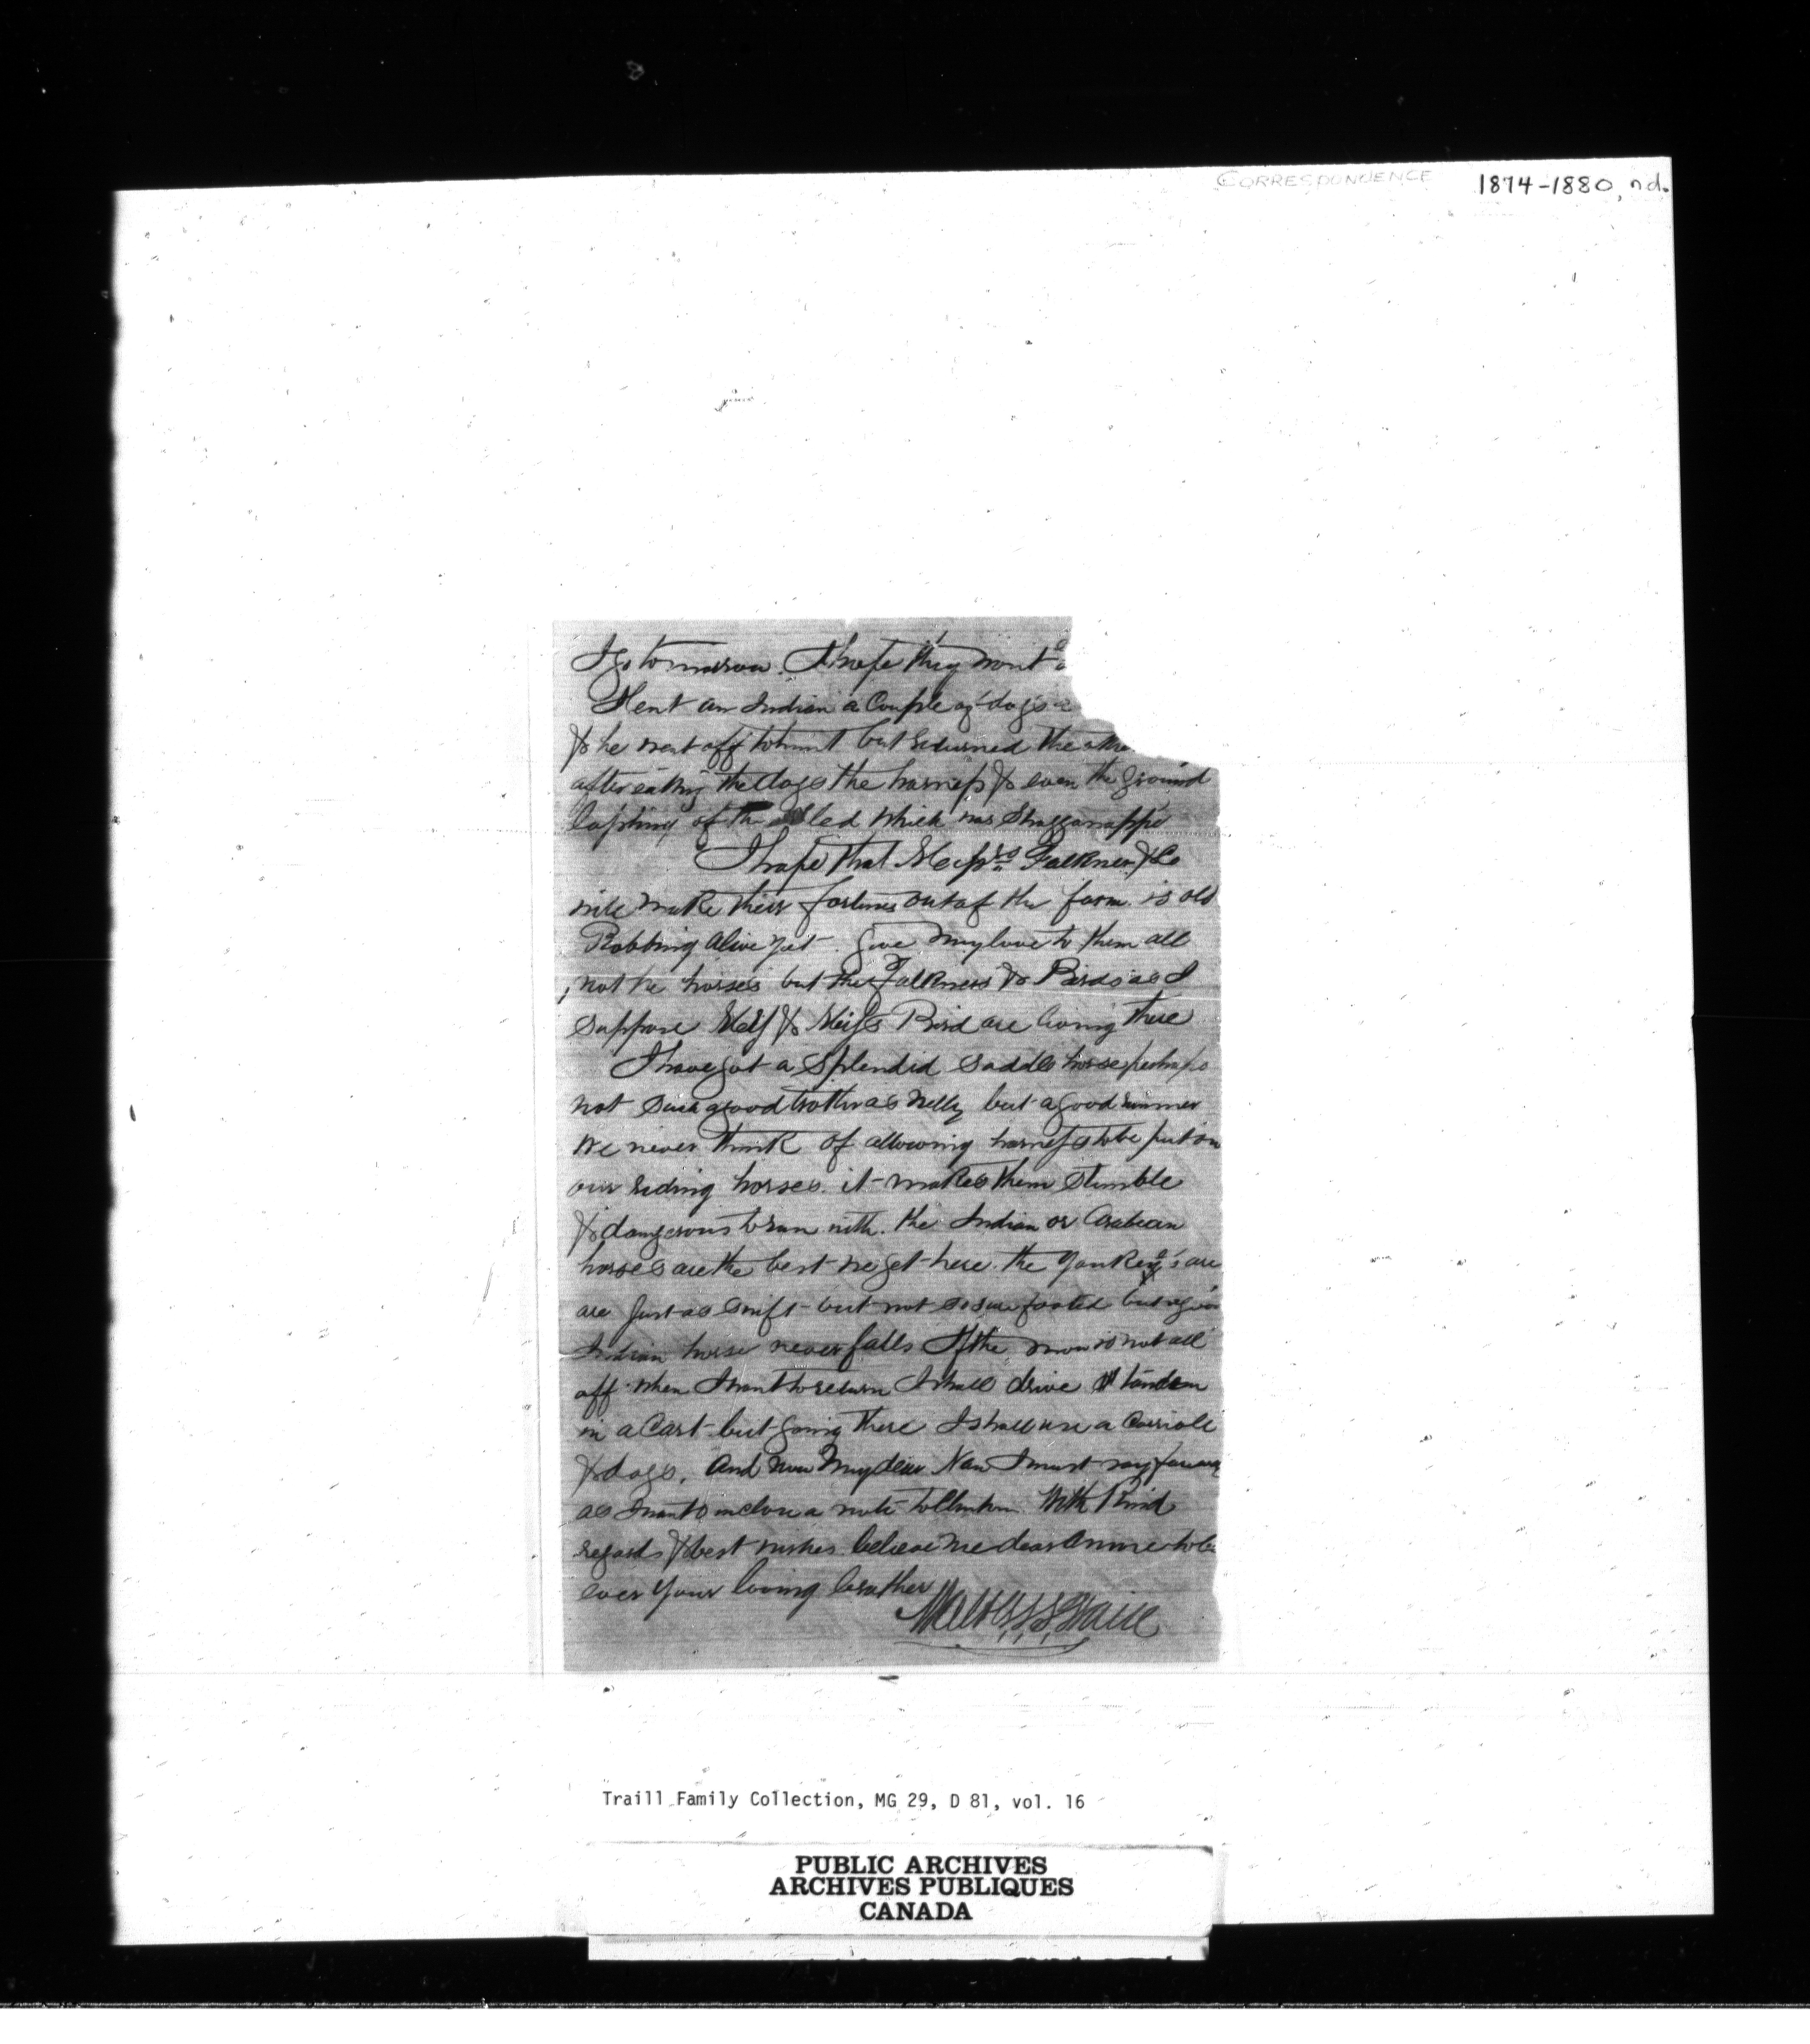 CORRESPONDENCE 1874-1880, nd.
I go tomorrow. I hope they wont
I lent an Indian a Couple of dogs
& he went off to hunt but returned the
after eating the dogs the harness & even the ground
lashing of the Sled which was Shagganappi
I hope that Messrs Falkner & Co
will make their fortunes out of the farm. is old
Robbing alive yet. Give my love to them all
not the horses but the Falkners & Birds as I
suppose & Bird are living there
I have got a Splendid saddle horse perhaps
not such a good trotter as Nelly but a good runner
We never think of allowing harness to be put on
our riding horses. it makes them stumble
& dangerous to run with. the Indian or Arabian
horses are the best we get here. the Yankey's are
are just as swift but not so sure footed but a good
Indian horse never falls If the snow is not all
off when I want to return I shall drive tandem
in a Cart but going there I shall use a Carriole
& dogs. And now my dear Nan I must say
as I want to inclose a note to Clinton. With Kind
regards & best wishes believe me dear Annie to be
ever your loving brother
Walter S. Traill
Traill Family Collection, MG 29, D 81, vol. 16
PUBLIC ARCHIVES
ARCHIVES PUBLIQUES
CANADA